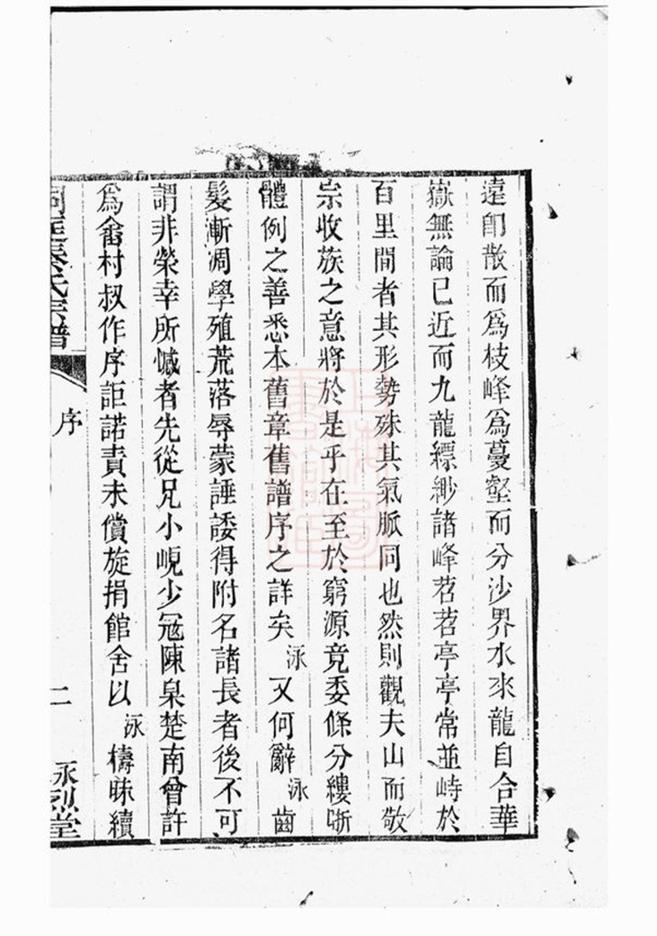 遠卽散而爲枝峰爲蔓壑而分沙界水來龍自合華
嶽無論已近而九龍縹緲諸峰苕苕亭亭常並峙於
百里間者其形勢殊其氣脈同也然則觀夫山而敬
宗收族之意將於是乎在至於窮源竟委條分縷晰
體例之善悉本舊章舊譜序之詳矣泳又何辭泳齒
髮漸凋學殖荒落辱蒙諈諉得附名諸長者後不可
謂非榮幸所憾者先從兄小峴少冦陳臬楚南曾許
爲畬村叔作序詎諾責未償旋捐館舍以泳檮昧續
秦氏宗譜
序
二
永烈堂